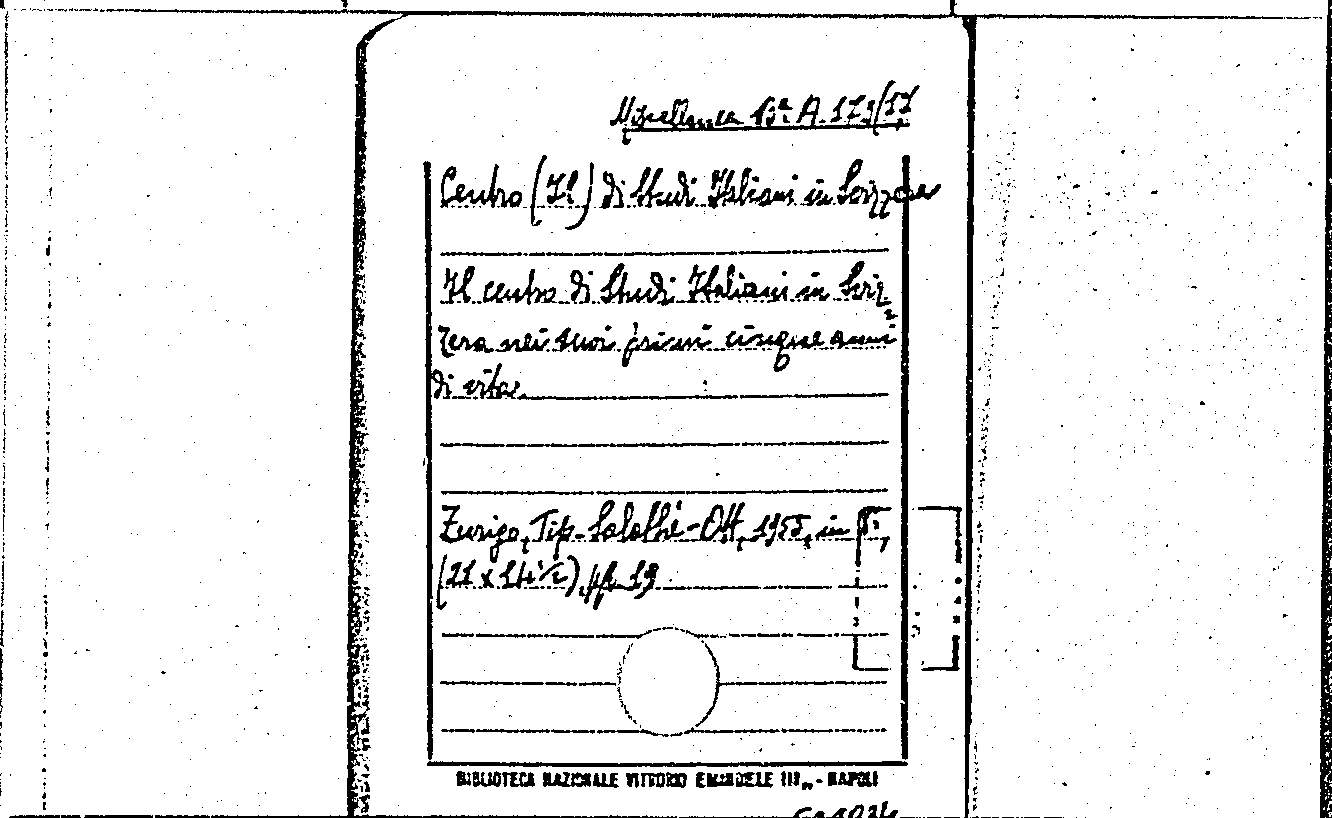 Miscellanea Bª A 173/17
Centro (Il) di Studi Italiani in Svizzera
Il centro di Studi Italiani in Sviz-
zera nei suoi primi cinque anni
di vita.
Zurigo, Tip. -Ott, 1955, in 8°,
(21 x 14 ½), pp. 19
BIBLIOTECA NAZIONALE VITTORIO EMANUELE III„ - NAPOLI